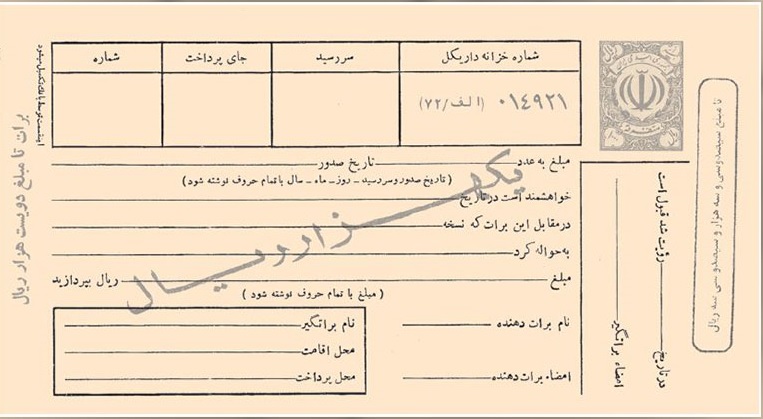 شماره خزانه داریکل
سررسید
جای پرداخت
شماره
۰۱۴۹۲۱ (الف/۷۲)
مبلغ به عدد تاریخ صدور
(تاریخ صدور و سررسید ـ روز ـ ماه ـ سال با تمام حروف نوشته شود)
خواهشمند است در تاریخ
در مقابل این برات که نسخه
به حواله کرد
مبلغ ریال بپردازید
(مبلغ با تمام حروف نوشته شود)
نام برات دهنده
امضاء برات دهنده
نام براتگیر
محل اقامت
محل پرداخت
یکهزار ریال
رؤیت شد قبول است
در تاریخ
امضاء براتگیر
تا مبلغ سیصد و سی و سه هزار و سیصد و سی سه ریال
برات تا مبلغ دویست هزار ریال
این قسمت توسط بانک تکمیل میشود